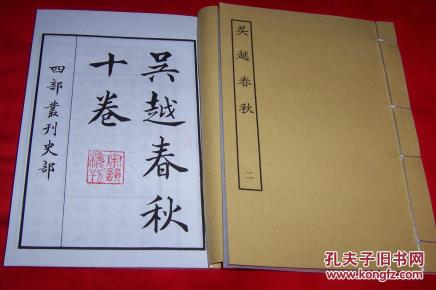 吴越春秋
十卷
四部叢刊史部
吴越春秋
二
孔夫子旧书网
www.kongfz.com